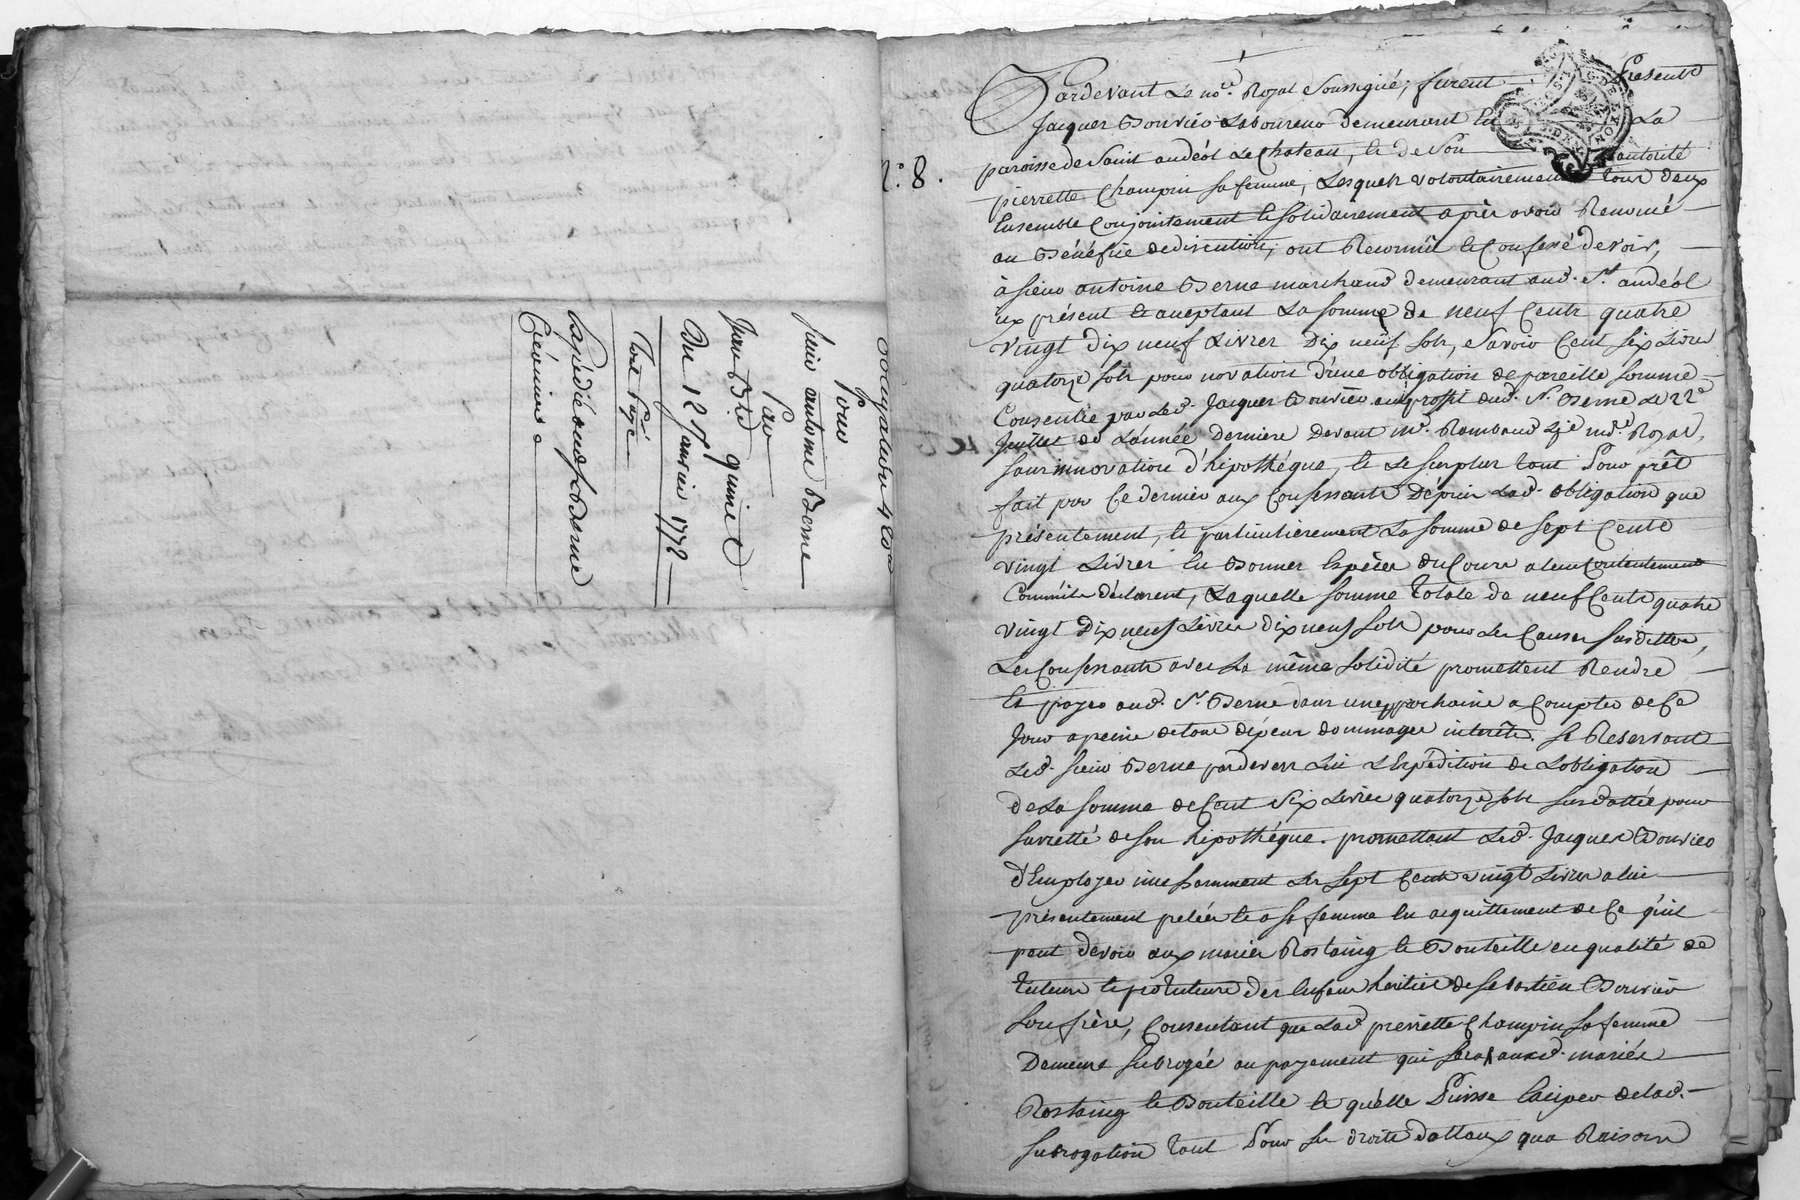 obligation 420#
Pour
sieur antoine Berne
Par
Jean B quinet
Du 12 Janvier 1772
Expédié aud. s.r Berne
N.o 8.
Pardevant Le no.re Royal Soussigné, furent Présents
Jacques Bouvier Laboureur demeurant en La
paroisse de Saint andéol Le Chateau, et de Son autorité
pierrette Champin sa femme, Lesquels volontairement tous deux
Ensemble Conjointement et solidairement après avoir Renoncé
au Bénéfice de discution, ont Reconnû et Confessé devoir,
à sieur antoine Berne marchand demeurant aud. S.t andéol
icy présent et aceptant La somme de neuf Cents quatre
vingt dix neuf Livres Dix neuf sols, savoir Cent six Livres
quatorze sols pour novation d'une obligation de pareille somme
Consentie par Led. Jacques Bouvier au profit dud. S.r Berne Le 22e
Juillet de L'année derniere devant m.e Rambaud no.re Royal,
sans innovation d'hipothéque, et Le surplus tant Pour prêt
fait par Ce dernier aux Confessants Dépuis Lad. obligation que
présentement, et particulièrement La somme de sept Cents
vingt Livres En Bonnes Espèces du Cours a leur Contentement
Comm'ils déclarent, Laquelle somme totale de neuf Cents quatre
vingt Dix neuf Livres dix neuf sols pour Les Causes susdittes,
Les Confessants avec La même solidité promettent Rendre
et payer aud. S.r Berne dans une prochaine a Compter de Ce
Jour a peine de tous dépens dommages interêts. se Reservant
Led. sieur Berne pardevers Lui L'Expédition de L'obligation
de La somme de Cent six Livres quatorze sols susdattée pour
surretté de son hipothéque. promettant Led. Jacques Bouvier
d'Employer incessamment Les sept Cents vingt Livres a lui
présentement pretées et a sa femme En acquittement de Ce qu'il
peut devoir aux mariés Rostaing et Bouteille en qualité de
tuteurs et protuteurs des Enfans héritiers de sebastien Bouvier
son frère, Consentant que Lad. pierrette Champin sa femme
Demeure subrogée au payement qui sera auxd. mariés
Rostaing et Bouteille et qu'elle Puisse Exiper de Lad.
subrogation tant Pour ses droits dottaux qua Raison